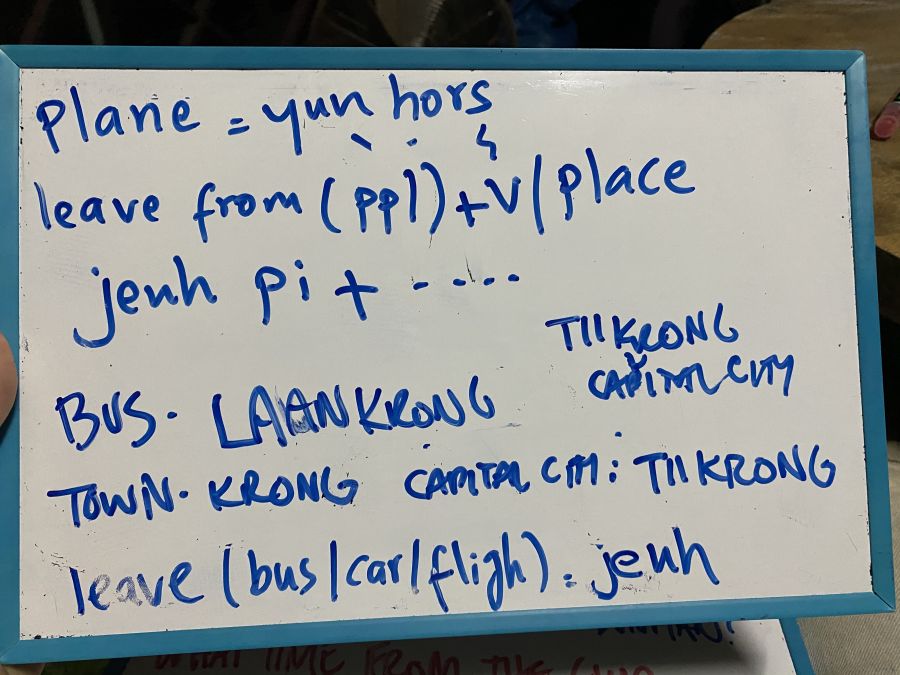 Plane = yun hors
leave from (ppl) + V / place
jenh pi + .....
TIIKRONG
CAPITAL CITY
BUS. LAANKRONG
TOWN. KRONG CAPITAL CITY: TIIKRONG
leave (bus/car/fligh). jenh
WHAT TIME FROM THE